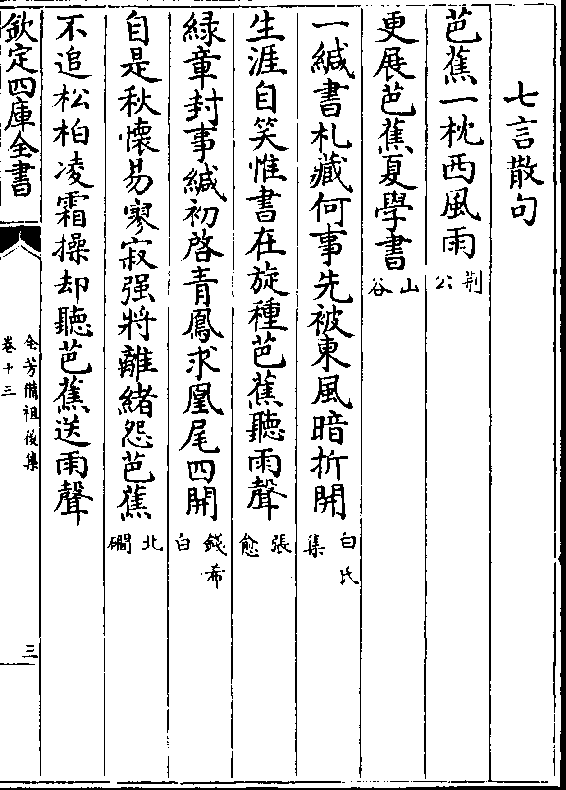 七言散句
芭蕉一枕西風雨荆公
更展芭蕉夏學書山谷
一緘書札藏何事先被東風暗折開白氏集
生涯自笑惟書在旋種芭蕉聽雨聲張愈
緑章封事緘初啓青鳳求凰尾四開錢希白
自是秋懷易寥寂强將離緒怨芭蕉北磵
不追松柏凌霜操却聽芭蕉送雨聲
欽定四庫全書
全芳備祖後集
卷十三
三